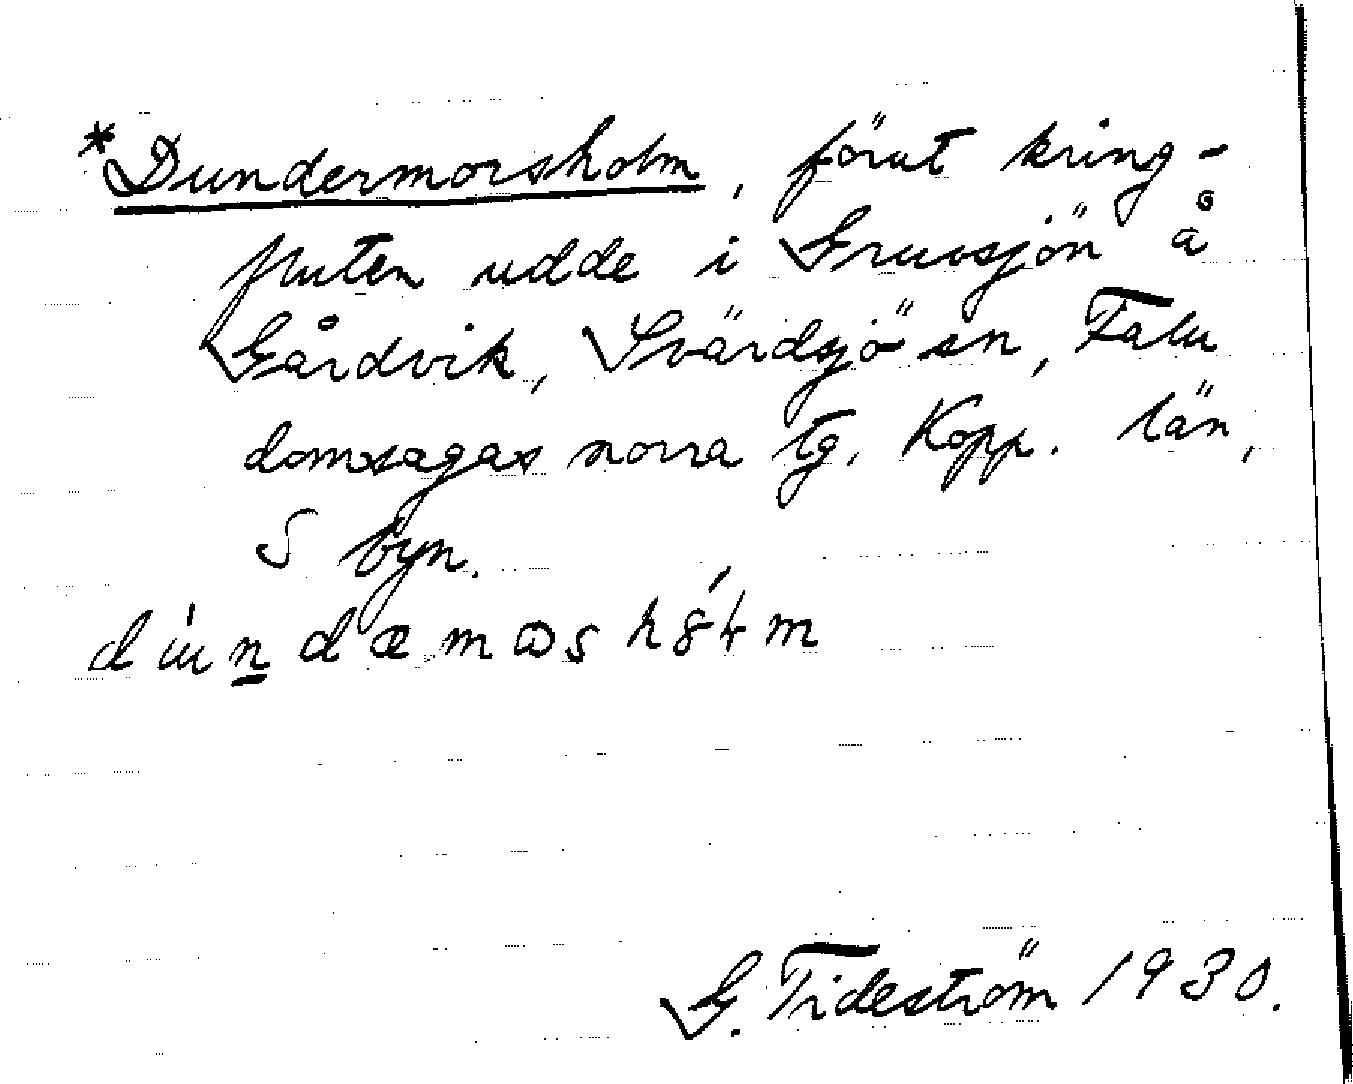 *Dundermorsholm, förut kring-
fluten udde i Gruvsjön å
Gårdvik, Svärdsjö sn, Falu
domsagas norra tg. Kopp. län,
S byn.
G. Tideström 1930.